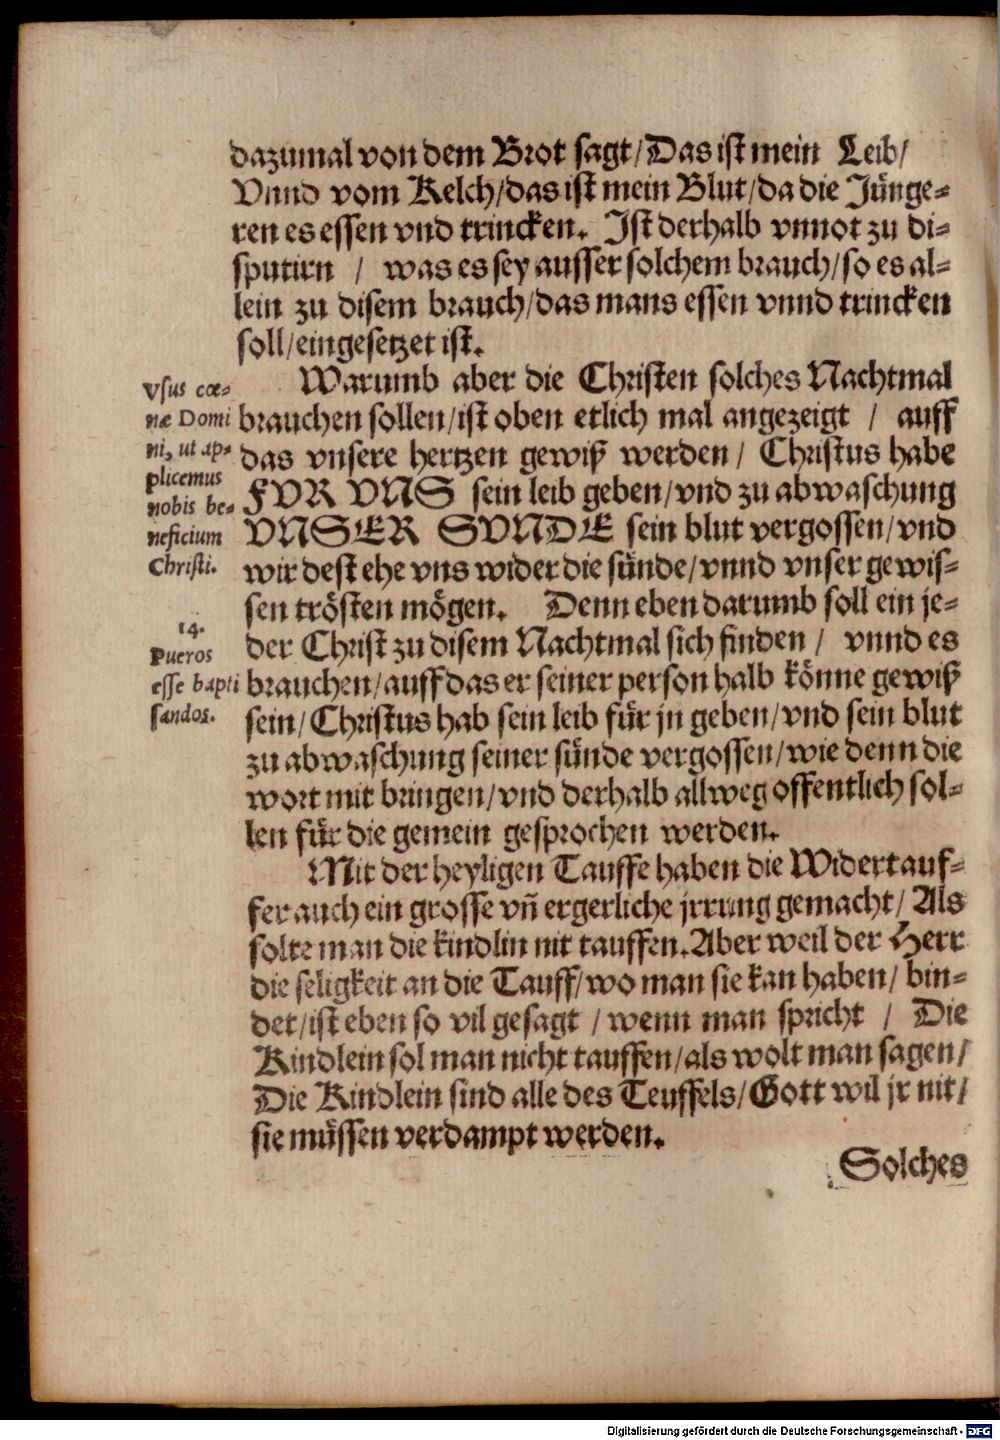 dazumal von dem Brot sagt/Das ist mein Leib/
Vnnd vom Kelch/das ist mein Blut/da die Jünge-
ren es essen vnd trincken. Ist derhalb vnnot zu di-
sputirn / was es sey ausser solchem brauch/so es al-
lein zu disem brauch/das mans essen vnnd trincken
soll/eingesetzet ist.
Warumb aber die Christen solches Nachtmal
brauchen sollen/ist oben etlich mal angezeigt / auff
das vnsere hertzen gewiß werden / Christus habe
FVR VNS sein leib geben/vnd zu abwaschung
VNSER SVNDE sein blut vergossen/vnd
wir dest ehe vns wider die sünde/vnnd vnser gewis-
sen trösten mögen. Denn eben darumb soll ein je-
der Christ zu disem Nachtmal sich finden / vnnd es
brauchen/auff das er seiner person halb könne gewiß
sein/Christus hab sein leib für jn geben/vnd sein blut
zu abwaschung seiner sünde vergossen/wie denn die
wort mit bringen/vnd derhalb allweg offentlich sol-
len für die gemein gesprochen werden.
Mit der heyligen Tauffe haben die Widertauf-
fer auch ein grosse vñ ergerliche jrrung gemacht/Als
solte man die kindlin nit tauffen. Aber weil der Herr
die seligkeit an die Tauff/wo man sie kan haben/bin-
det/ist eben so vil gesagt / wenn man spricht / Die
Kindlein sol man nicht tauffen/als wolt man sagen/
Die Kindlein sind alle des Teuffels/Gott wil jr nit/
sie müssen verdampt werden.
Solches
Vsus cœ-
næ Domi
ni, ut ap-
plicemus
nobis be-
neficium
Christi.
14.
Pueros
esse bapti
sandos.
Digitalisierung gefördert durch die Deutsche Forschungsgemeinschaft - DFG